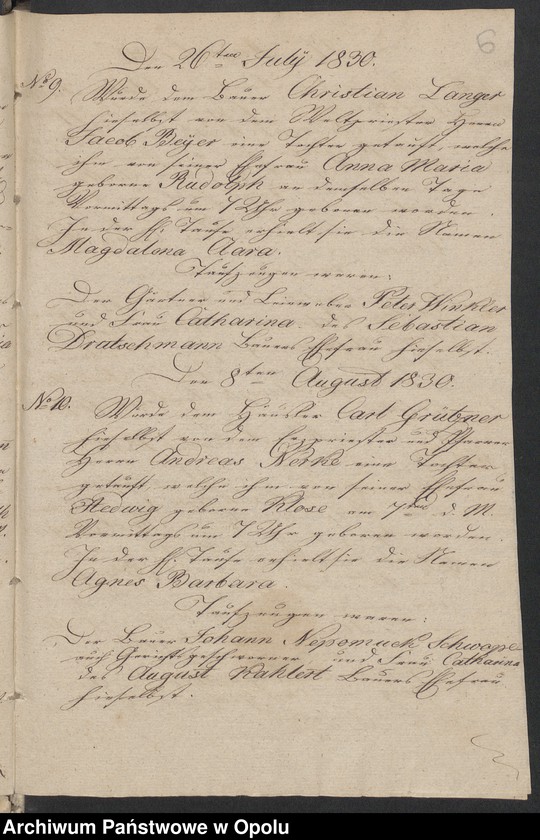 6
Den 26ten July 1830.
No 9.
Wurde dem Bauer Christian Langer
hieselbst von dem Weltpriester Herrn
Jacob Beÿer eine Tochter getauft, welche
ihm von seiner Ehefrau Anna Maria
geborne Rudolph an demselben Tage
Vormittags um 7 Uhr geboren worden.
In der h. Taufe erhielt sie die Namen
Magdalena Clara.
Taufzeugen waren:
Der Gärtner und Leinweber Peter Winkler
und Frau Catharina des Sebastian
Dratschmann Bauers Ehefrau hieselbst.
Den 8ten August 1830.
No 10.
Wurde dem Häusler Carl Grübner
hieselbst von dem Erzpriester und Pfarrer
Herrn Andreas Nerke eine Tochter
getauft, welche ihm von seiner Ehefrau
Hedwig geborne Klose am 7ten d. M.
Vormittags um 7 Uhr geboren worden.
In der h. Taufe erhielt sie die Namen
Agnes Barbara.
Taufzeugen waren:
Der Bauer Johann Nepomuck Schwope
auch Gerichtsgeschworner und Frau Catharina
des August Kahlert Bauers Ehefrau
hieselbst.
Archiwum Państwowe w Opolu